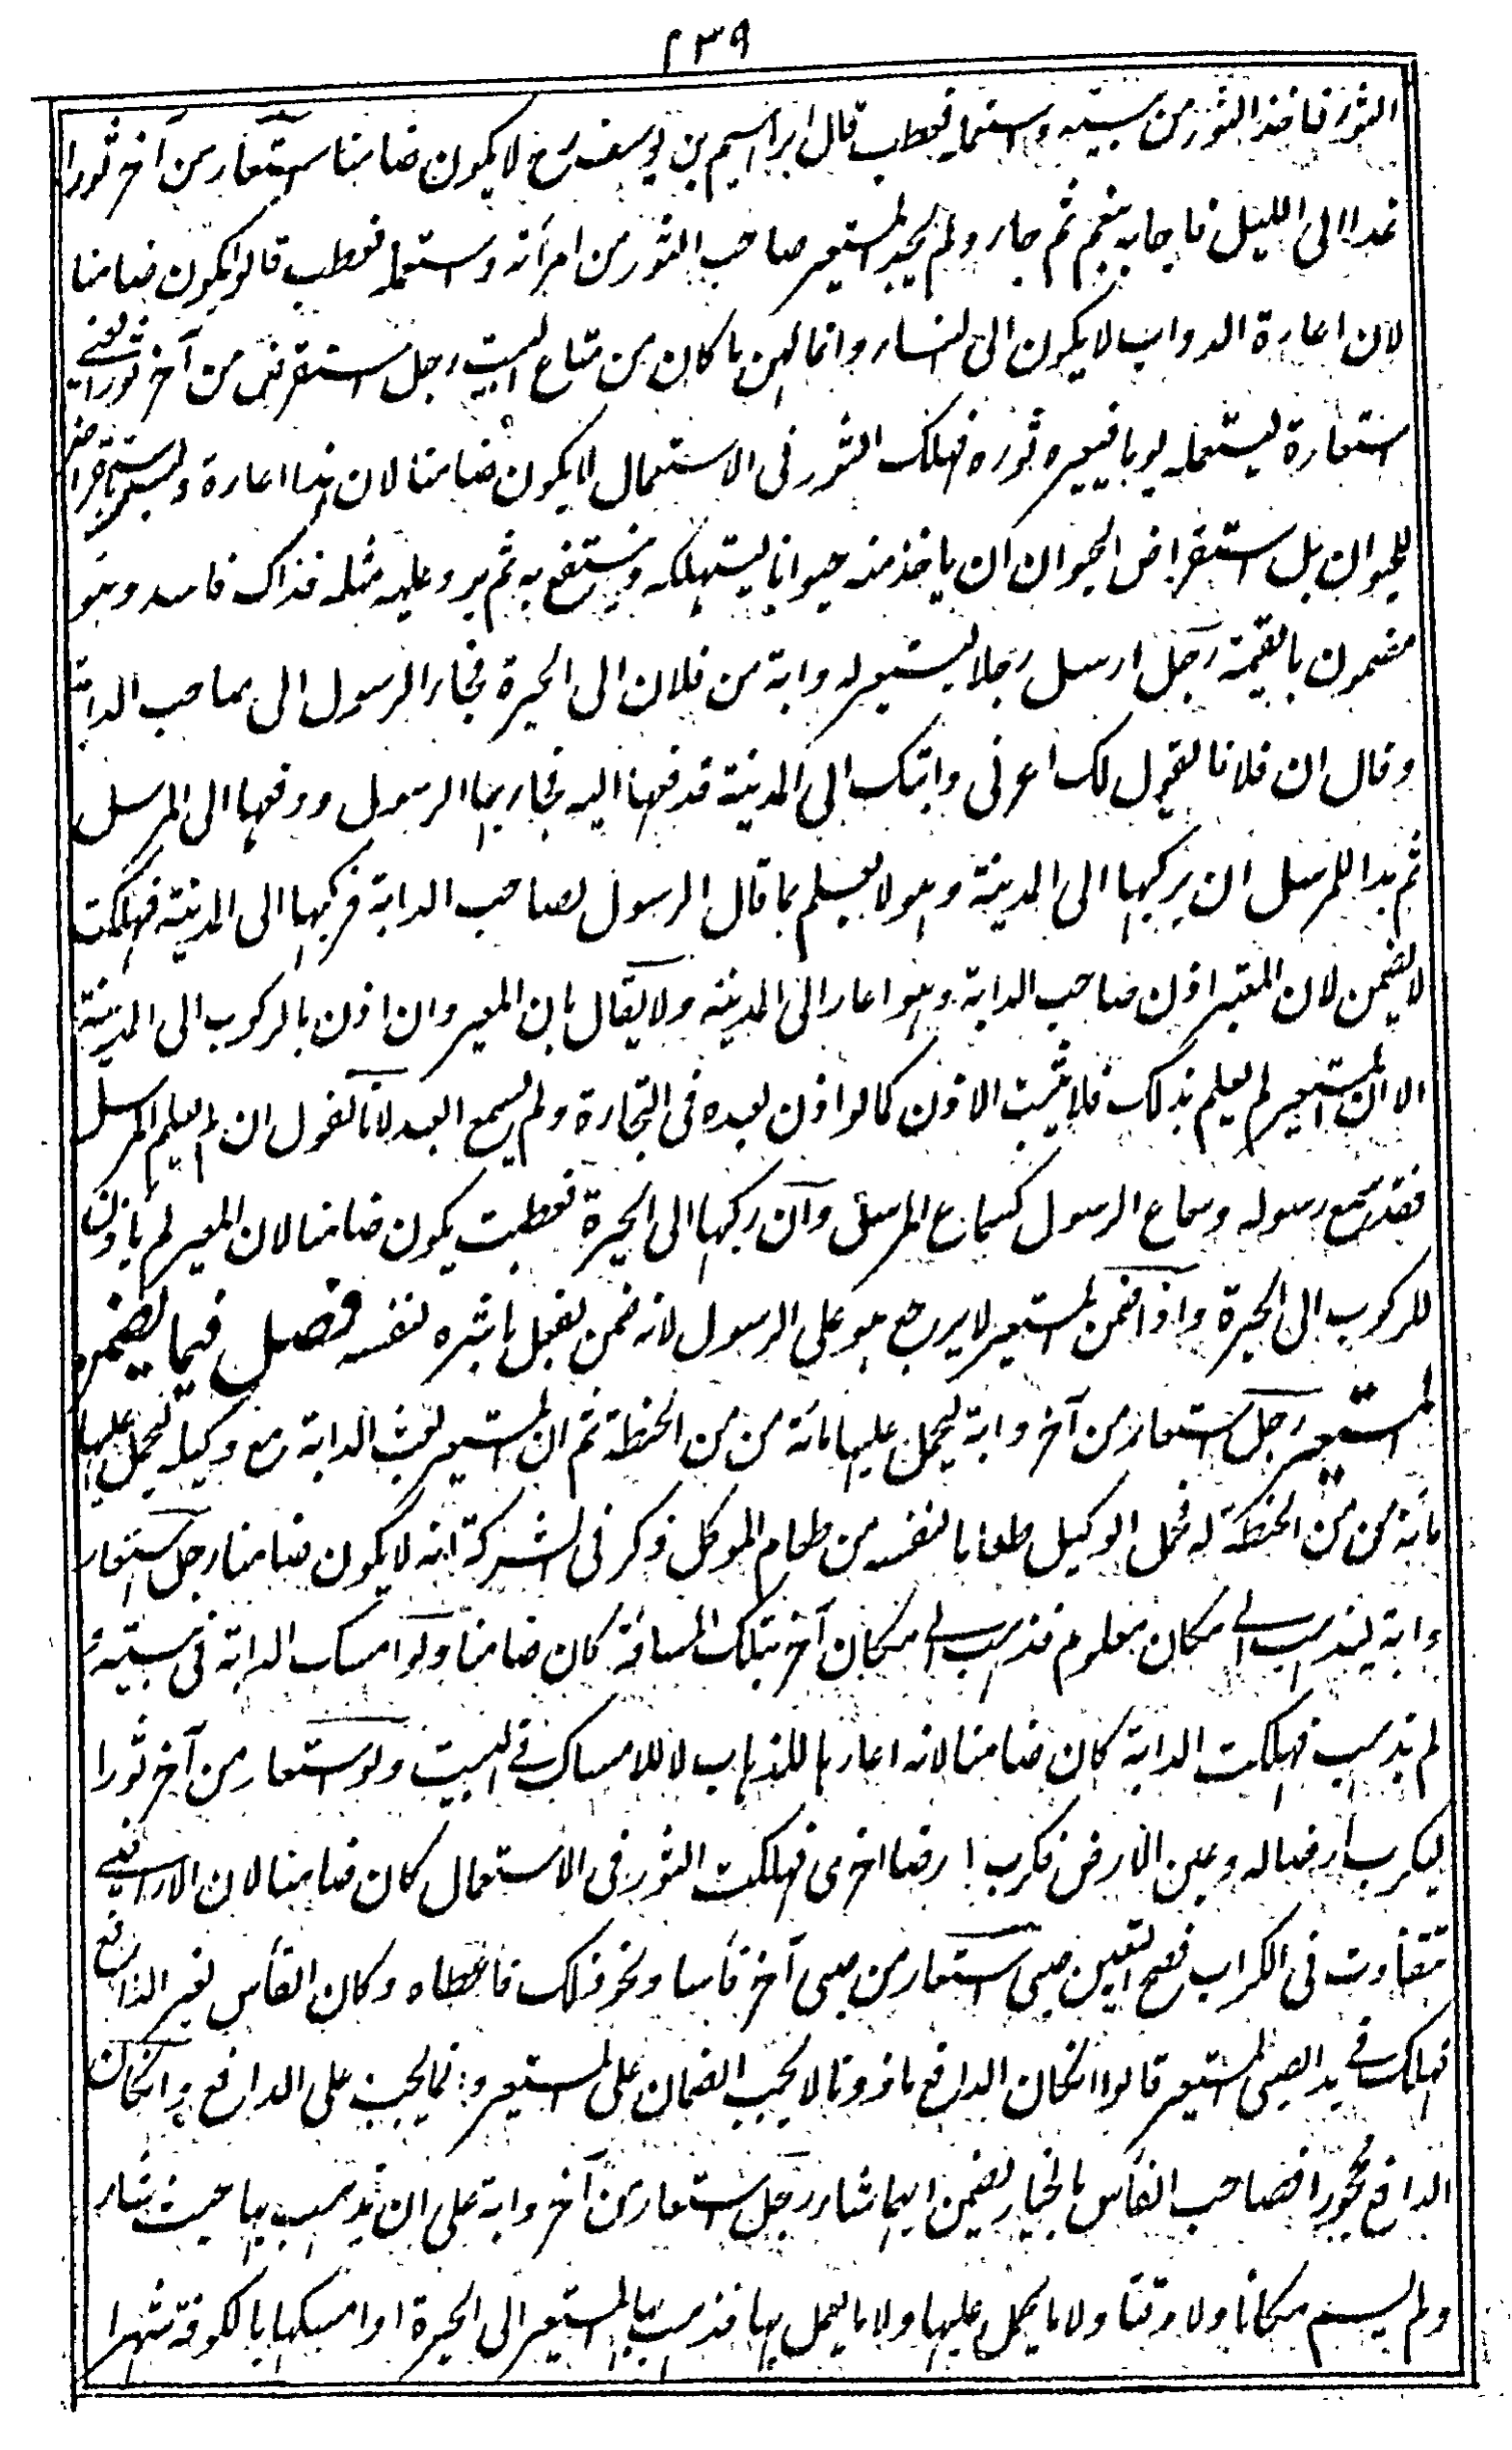 ٢٣٩
الثور فاخذ الثور من بيته واستعمله فعطب قال ابراهيم بن يوسف رح لا يكون ضامنا استعار من آخر ثورا
غدا الى الليل فاجابه بنعم ثم جاء ولم يجد المستعير صاحب الثور من امرأته واستعمله فعطب قالوا يكون ضامنا
لان اعارة الدواب لا يكون الى النساء وانما لهن ما كان من متاع البيت رجل استقرض من آخر ثورا يعنى
استعارة ليستعمله يوما فيعيره ثوره فهلك الثور فى الاستعمال لا يكون ضامنا لان هذا اعارة وليس باستقراض
للحيوان بل استقراض الحيوان ان ياخذ منه حيوانا ليستهلكه وينتفع به ثم يرد عليه مثله فذاك فاسد وهو
مضمون بالقيمة رجل ارسل رجلا ليستعير له دابة من فلان الى الحيرة فجاء الرسول الى صاحب الدابة
وقال ان فلانا يقول لك اعرنى دابتك الى المدينة فدفعها اليه فجاء بها الرسول ودفعها الى المرسل
ثم بدا للمرسل ان يركبها الى المدينة وهو لا يعلم بما قال الرسول لصاحب الدابة فركبها الى المدينة فهلكت
لا يضمن لان المعتبر اذن صاحب الدابة وهو اعار الى المدينة ولا يقال بان المعير وان اذن بالركوب الى المدينة
الا ان المستعير لم يعلم بذلك فلا يثبت الاذن كما لو اذن لعبده فى التجارة ولم يسمع العبد لانا نقول ان لم يعلم المرسل
فقد سمع رسوله وسماع الرسول كسماع المرسل وان ركبها الى الحيرة فعطبت يكون ضامنا لان المعير لم ياذن
للركوب الى الحيرة واذا ضمن المستعير لا يرجع هو على الرسول لانه ضمن بفعل باشره لنفسه فصل فيما يضمن
المستعير رجل استعار من آخر دابة ليحمل عليها مائة من من الحنطة ثم ان المستعير بعث الدابة مع وكيله ليحمل عليها
مائة من من الحنطة له فحمل الوكيل طعاما لنفسه من طعام الموكل ذكر فى الشركة انه لا يكون ضامنا رجل استعار
دابة ليذهب الى مكان معلوم فذهب الى مكان آخر بتلك المسافة كان ضامنا ولو امسك الدابة فى بيته و
لم يذهب فهلكت الدابة كان ضامنا لانه اعارها للذهاب لا للامساك فى البيت ولو استعار من آخر ثورا
ليكرب ارضا له وعين الارض فكرب ارضا اخرى فهلكت الثور فى الاستعمال كان ضامنا لان الاراضى
تتفاوت فى الكراب فصح التعيين صبى استعار من صبى آخر فأسا ونحو ذلك فاعطاه وكان الفأس لغير الدافع
فهلك فى يد الصبى المستعير قالوا انكان الدافع ماذونا لا يجب الضمان على المستعير وانما يجب على الدافع وانكان
الدافع محجورا فصاحب الفأس بالخيار يضمن ايهما شاء رجل استعار من آخر دابة على ان يذهب بها حيث شاء
ولم يسم مكانا ولا وقتا ولا ما يحمل عليها ولا ما يعمل بها فذهب بها المستعير الى الحيرة او امسكها بالكوفة شهرا